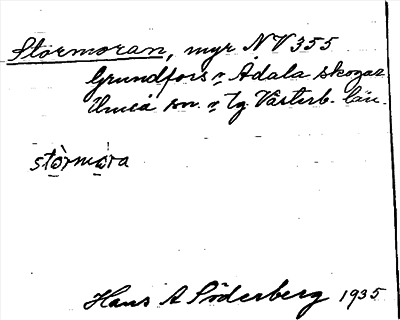 Stormoran, myr NV 355
Grundfors o Ådala skogar
Umeå sn. o tg Västerb. län.
stòrmọra
Hans A Söderberg 1935